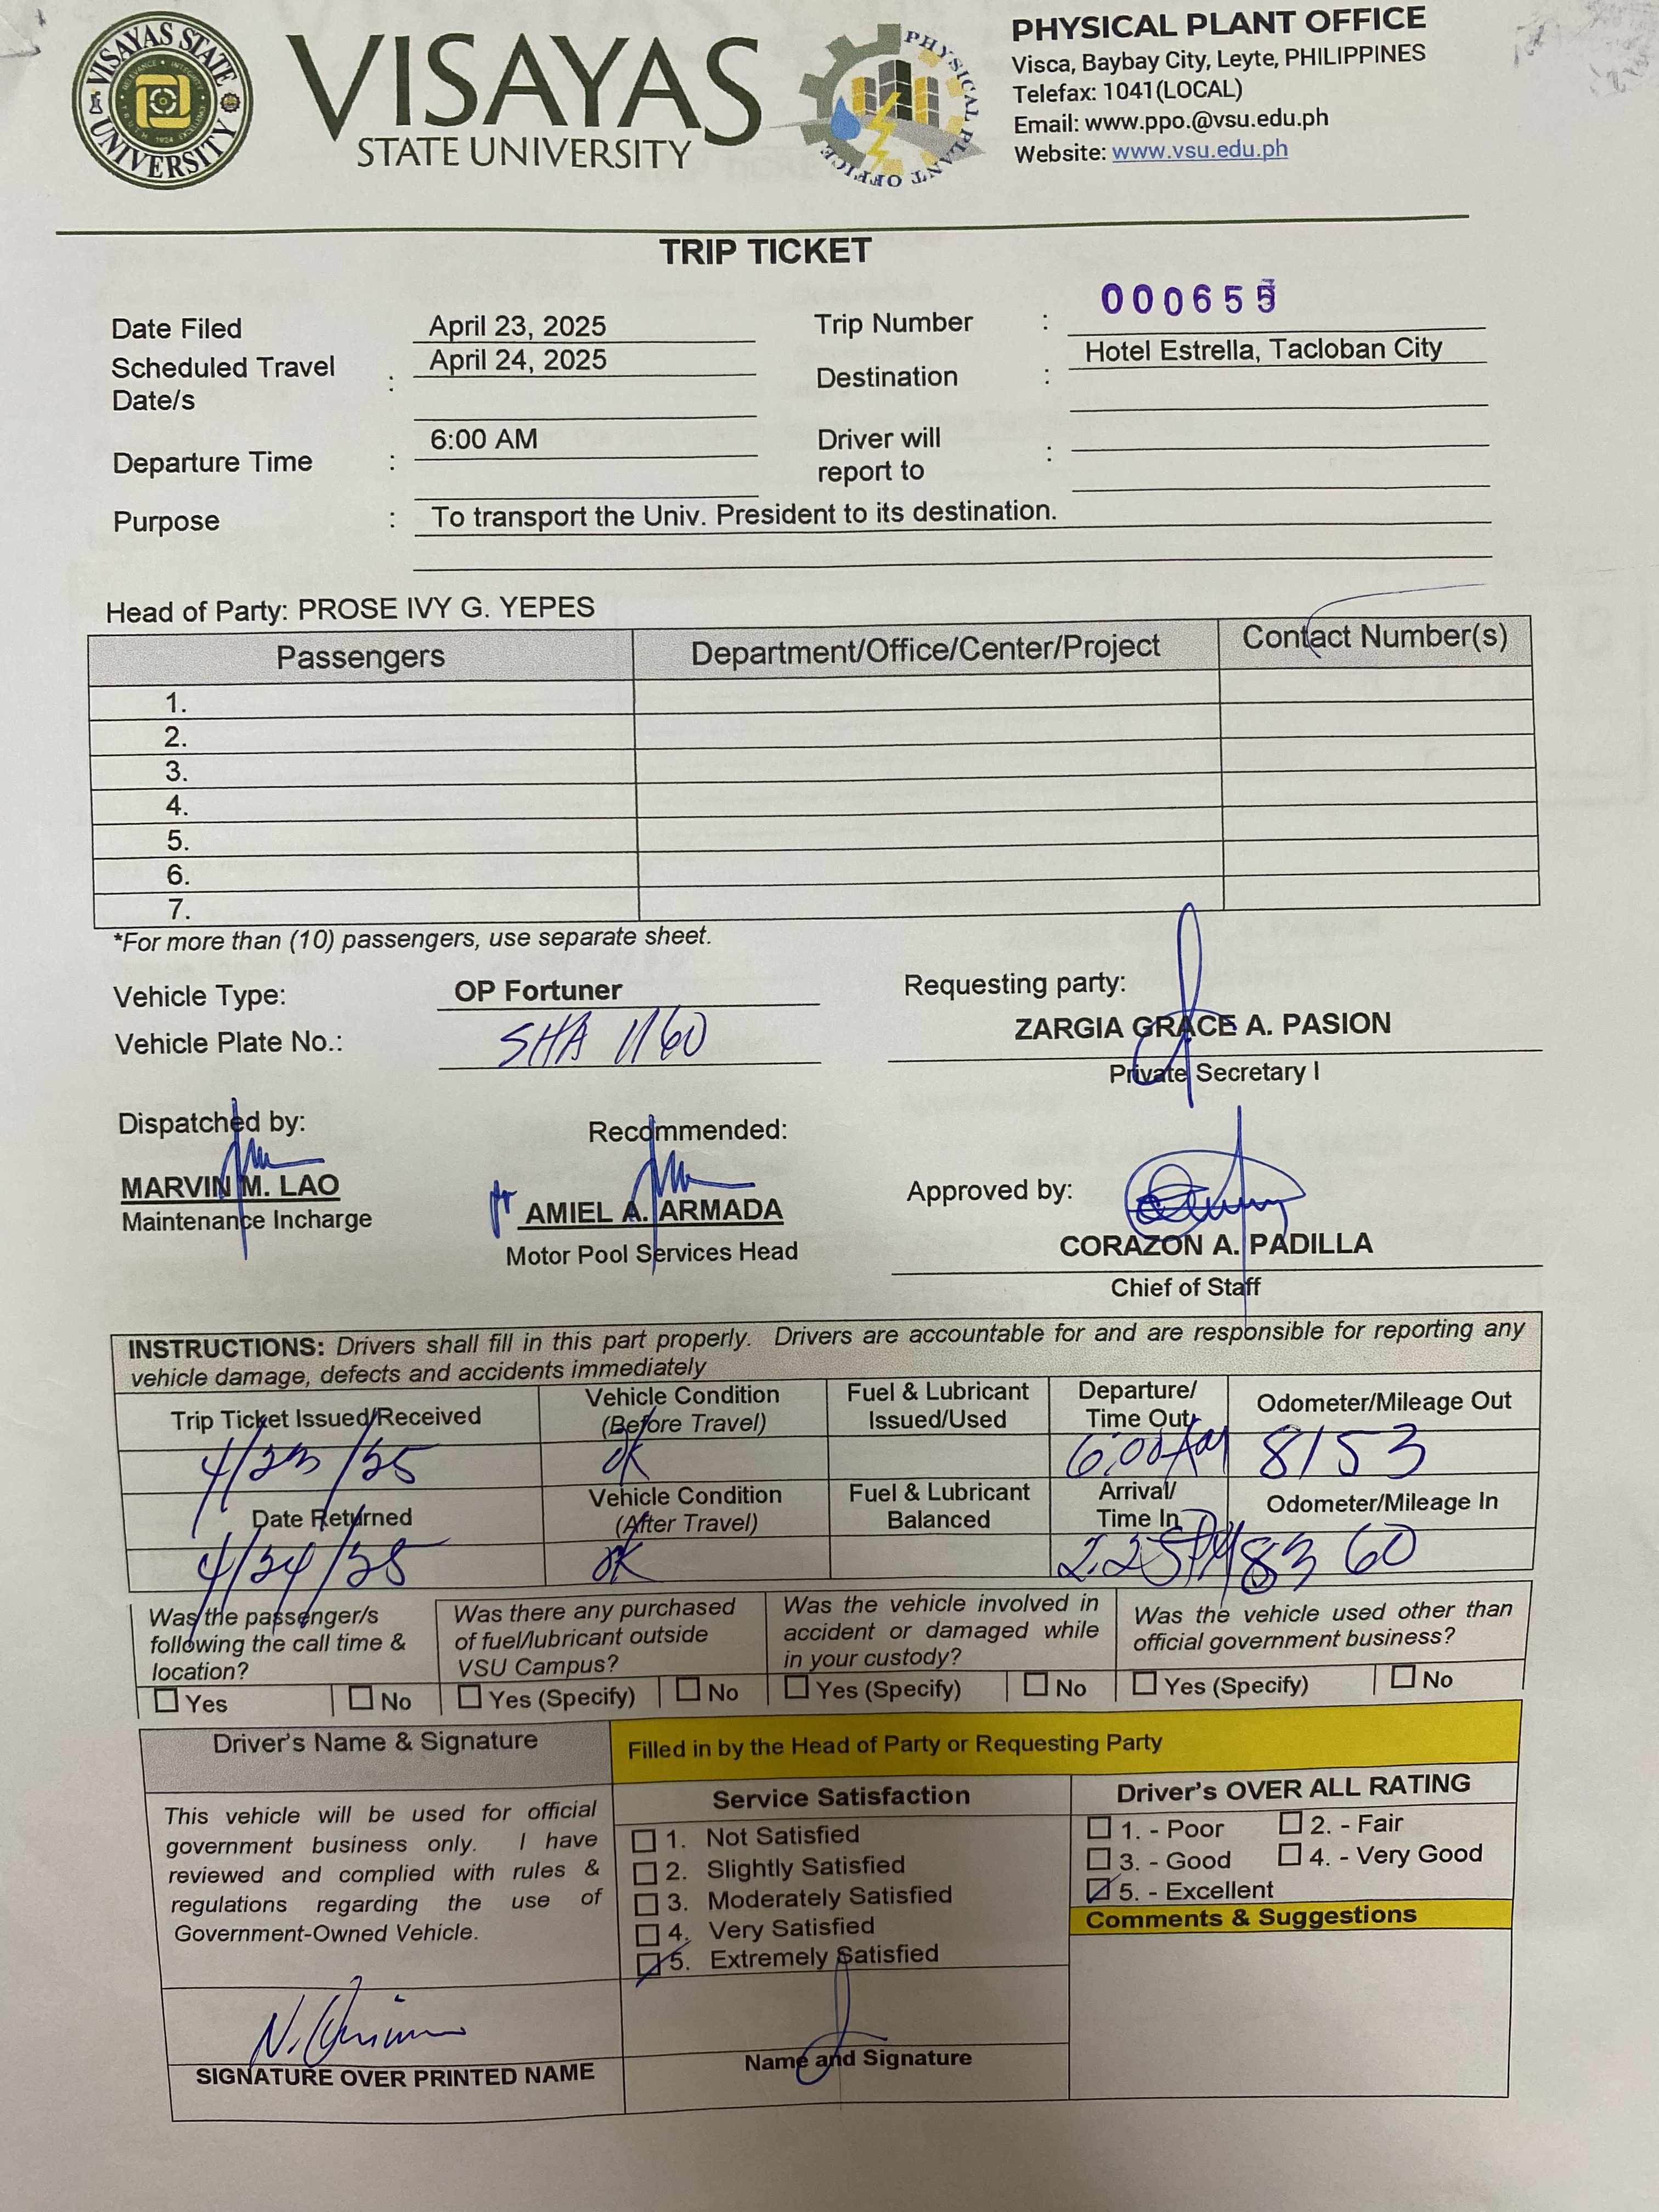 VISAYAS STATE UNIVERSITY
VISAYAS
STATE UNIVERSITY
PHYSICAL PLANT OFFICE
PHYSICAL PLANT OFFICE
Visca, Baybay City, Leyte, PHILIPPINES
Telefax: 1041(LOCAL)
Email: www.ppo.@vsu.edu.ph
Website: www.vsu.edu.ph
TRIP TICKET
Date Filed April 23, 2025 Trip Number : 000655
Scheduled Travel Date/s : April 24, 2025 Destination : Hotel Estrella, Tacloban City
Departure Time : 6:00 AM Driver will report to :
Purpose : To transport the Univ. President to its destination.
Head of Party: PROSE IVY G. YEPES
Passengers Department/Office/Center/Project Contact Number(s)
1.
2.
3.
4.
5.
6.
7.
*For more than (10) passengers, use separate sheet.
Vehicle Type: OP Fortuner
Vehicle Plate No.: SHA 1160
Requesting party:
ZARGIA GRACE A. PASION
Private Secretary I
Dispatched by:
MARVIN M. LAO
Maintenance Incharge
Recommended:
AMIEL A. ARMADA
Motor Pool Services Head
Approved by:
CORAZON A. PADILLA
Chief of Staff
INSTRUCTIONS: Drivers shall fill in this part properly. Drivers are accountable for and are responsible for reporting any
vehicle damage, defects and accidents immediately
Trip Ticket Issued/Received Vehicle Condition (Before Travel) Fuel & Lubricant Issued/Used Departure/ Time Out Odometer/Mileage Out
4/23/25 OK 6:00AM 8153
Date Returned Vehicle Condition (After Travel) Fuel & Lubricant Balanced Arrival/ Time In Odometer/Mileage In
4/24/25 OK 2:25PM 8360
Was the passenger/s
following the call time &
location?
Yes No
Was there any purchased
of fuel/lubricant outside
VSU Campus?
Yes (Specify) No
Was the vehicle involved in
accident or damaged while
in your custody?
Yes (Specify) No
Was the vehicle used other than
official government business?
Yes (Specify) No
Driver's Name & Signature
Filled in by the Head of Party or Requesting Party
This vehicle will be used for official
government business only. I have
reviewed and complied with rules &
regulations regarding the use of
Government-Owned Vehicle.
SIGNATURE OVER PRINTED NAME
Service Satisfaction
1. Not Satisfied
2. Slightly Satisfied
3. Moderately Satisfied
4. Very Satisfied
5. Extremely Satisfied
Name and Signature
Driver's OVER ALL RATING
1. - Poor 2. - Fair
3. - Good 4. - Very Good
5. - Excellent
Comments & Suggestions